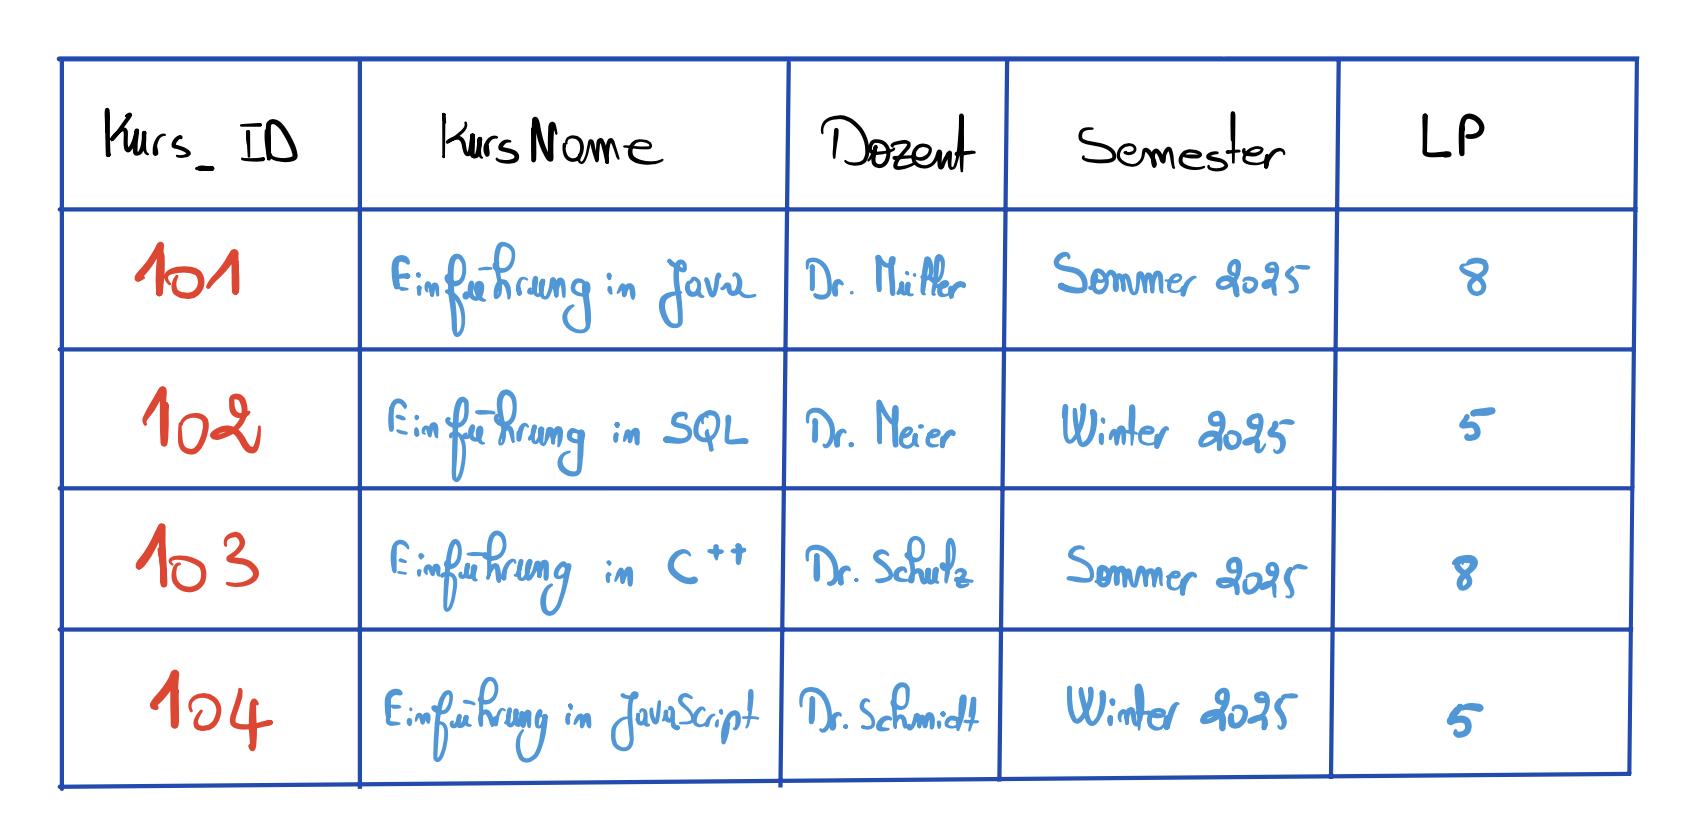 Kurs_ID KursName Dozent Semester LP
101 Einführung in Java Dr. Müller Sommer 2025 8
102 Einführung in SQL Dr. Meier Winter 2025 5
103 Einführung in C++ Dr. Schulz Sommer 2025 8
104 Einführung in JavaScript Dr. Schmidt Winter 2025 5